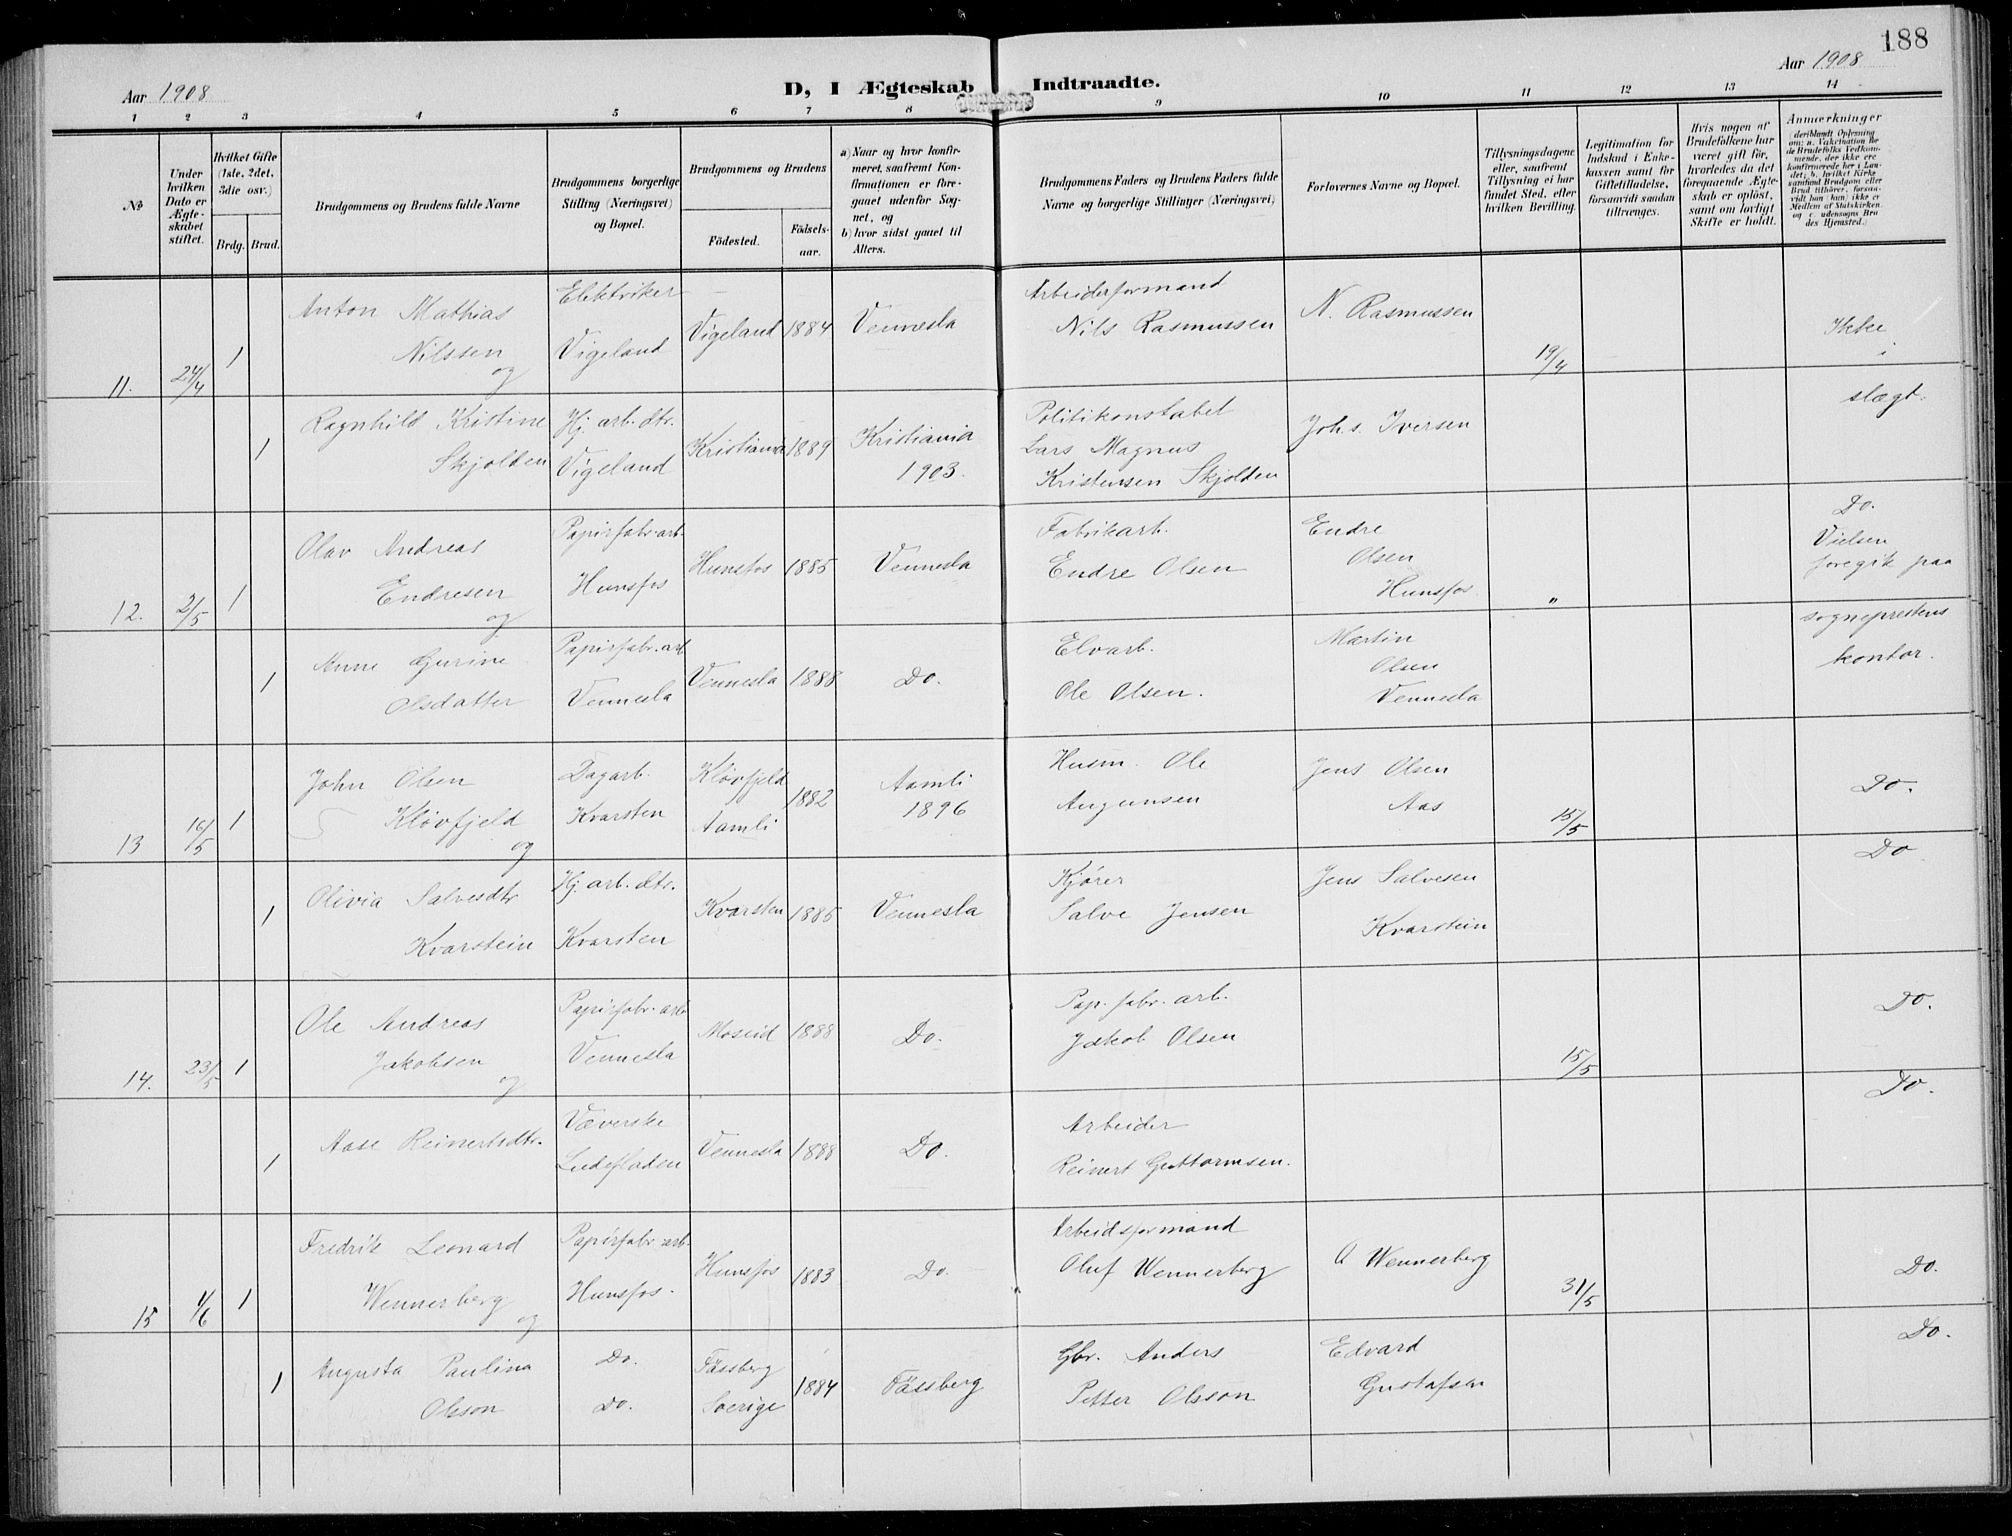 188
Aar 1908
D, I Ægteskab Indtraadte.
Aar 1908
1 2 3 4 5 6 7 8 9 10 11 12 13 14
No
Under hvilken Dato er Ægteskabet stiftet.
Hvilket Gifte (1ste, 2det, 3die osv.)
Brdg. Brud.
Brudgommens og Brudens fulde Navne
Brudgommens borgerlige Stilling (Næringsvei) og Bopæl.
Brudgommens og Brudens
Födested.
Födselsaar.
a) Naar og hvor konfirmeret, saafremt Konfirmationen er foregaaet udenfor Sognet, og
b) hvor sidst gaaet til Alters.
Brudgommens Faders og Brudens Faders fulde Navne og borgerlige Stillinger (Næringsvei)
Forlovernes Navne og Bopæl.
Tillysningsdagene eller, saafremt Tillysning ei har fundet Sted, efter hvilken Bevilling.
Legitimation for Indskud i Enkekassen samt for Giftetilladelse, forsaavidt saadan tiltrænges.
Hvis nogen af Brudefolkene har været gift för, hvorledes da det foregaaende Ægteskab er oplöst, samt om lovligt Skifte er holdt.
Anmærkninger
deriblandt Oplysning om: a. Vakcination for de Brudefolks Vedkommende, der ikke ere konfirmerede her i Landet; b. hvilket Kirkesamfund Brudgom eller Brud tilhörer, forsaavidt han (hun) ikke er Medlem af Statskirken, og c. udensogns Brudes Hjemsted.)
11. 24/4 1 Anton Mathias Nilssen og
Elektriker Vigeland
Vigeland 1884 Vennesla
Arbeiderformand Nils Rasmussen
N. Rasmussen
19/4
Ikke i slægt.
1 Ragnhild Kristine Skjolden
Hj. arb. dtr. Vigeland
Kristiania 1889 Kristiania 1903.
Politikonstabel Lars Magnus Kristensen Skjolden
Johs. Iversen
12. 2/5 1 Olav Andreas Endresen og
Papirfabr. arb. Hunsfos
Hunsfos 1885 Vennesla
Fabrikarb. Endre Olsen
Endre Olsen Hunsfos.
"
Do. Vielsen foregik paa sogneprestens kontor.
1 Anne Gurine Olsdatter
Papirfabr. arb Vennesla
Vennesla 1888 Do.
Elvarb. Ole Olsen.
Martin Olsen Vennesla
13 16/5 1 John Olsen Kløvfjeld og
Dagarb. Kvarsten
Kløvfjeld Aamli 1882 Aamli 1896
Husm. Ole Augunsen
Jens Olsen Aas
15/5
Do.
1 Olivia Salvesdtr Kvarstein
Hj. arb. dtr. Kvarsten
Kvarsten 1885 Vennesla
Kjører Salve Jensen
Jens Salvesen Kvarstein
Do
14. 23/5 1 Ole Andreas Jakobsen og
Papirfabr. arb Vennesla
Moseid 1888 Do.
Pap. fabr. arb. Jakob Olsen
15/5
Do.
1 Aase Reinertsdtr.
Væverske Ludefladen
Vennesla 1888 Do.
Arbeider Reinert Guttormsen.
Do.
15 1/6 1 Fredrik Leonard Wennerberg og
Papirfabr. arb. Hunsfos.
Hunsfos 1883 Do.
Arbeidsformand Oluf Wennerberg
O Wennerberg
31/5
Do.
1 Augusta Paulina Olsson
Do. Do.
Fässberg Sverige 1884 Fässberg
Gbr. Anders Petter Olsson
Edvard Gustafsen
Do.